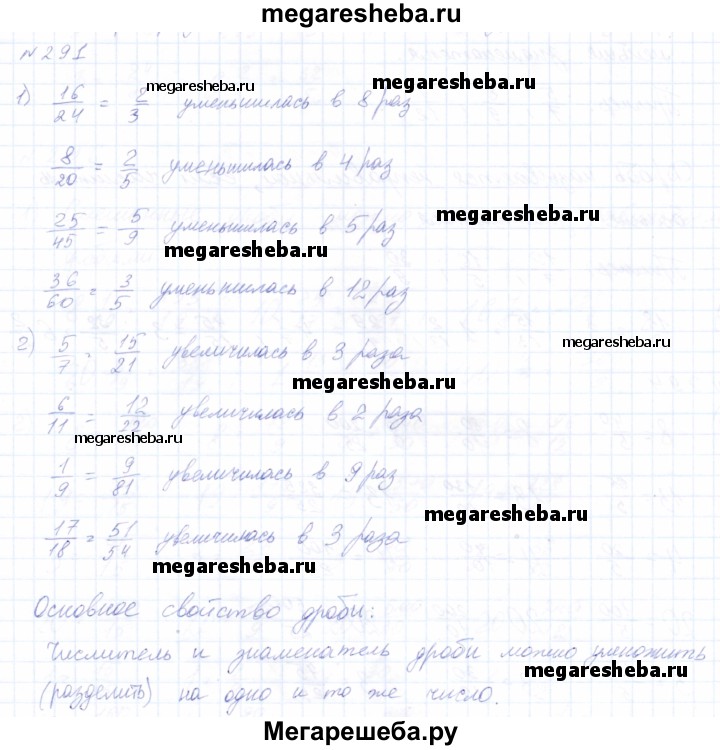 megaresheba.ru
№291
1) 16/24 = 2/3 уменьшилась в 8 раз
megaresheba.ru megaresheba.ru
8/20 = 2/5 уменьшилась в 4 раз
25/45 = 5/9 уменьшилась в 5 раз
megaresheba.ru
megaresheba.ru
36/60 = 3/5 уменьшилась в 12 раз
2) 5/7 = 15/21 увеличилась в 3 раза
megaresheba.ru
megaresheba.ru
6/11 = 12/22 увеличилась в 2 раза
megaresheba.ru
1/9 = 9/81 увеличилась в 9 раз
megaresheba.ru
17/18 = 51/54 увеличилась в 3 раза
megaresheba.ru
Основное свойство дроби:
Числитель и знаменатель дроби можно умножить
megaresheba.ru
(разделить) на одно и то же число.
Мегарешеба.ру